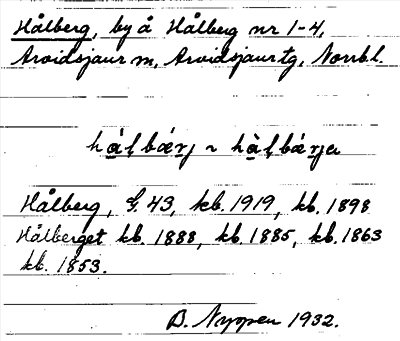 Hålberg, by å Hålberg nr 1-4,
Arvidsjaur sn, Arvidsjaur tg, Norrb.l.
hàlbærj ~ hàlbærja
Hålberg, G. 43, kb. 1919, kb. 1898
Hålberget kb. 1888, kb. 1885, kb. 1863
kb. 1853.
B. Nyman 1932.